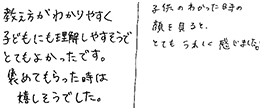 教え方がわかりやすく
子どもにも理解しやすそうで
とてもよかったです。
褒めてもらった時は
嬉しそうでした。
子供のわかった時の
顔を見ると、
とてもうれしく感じました。